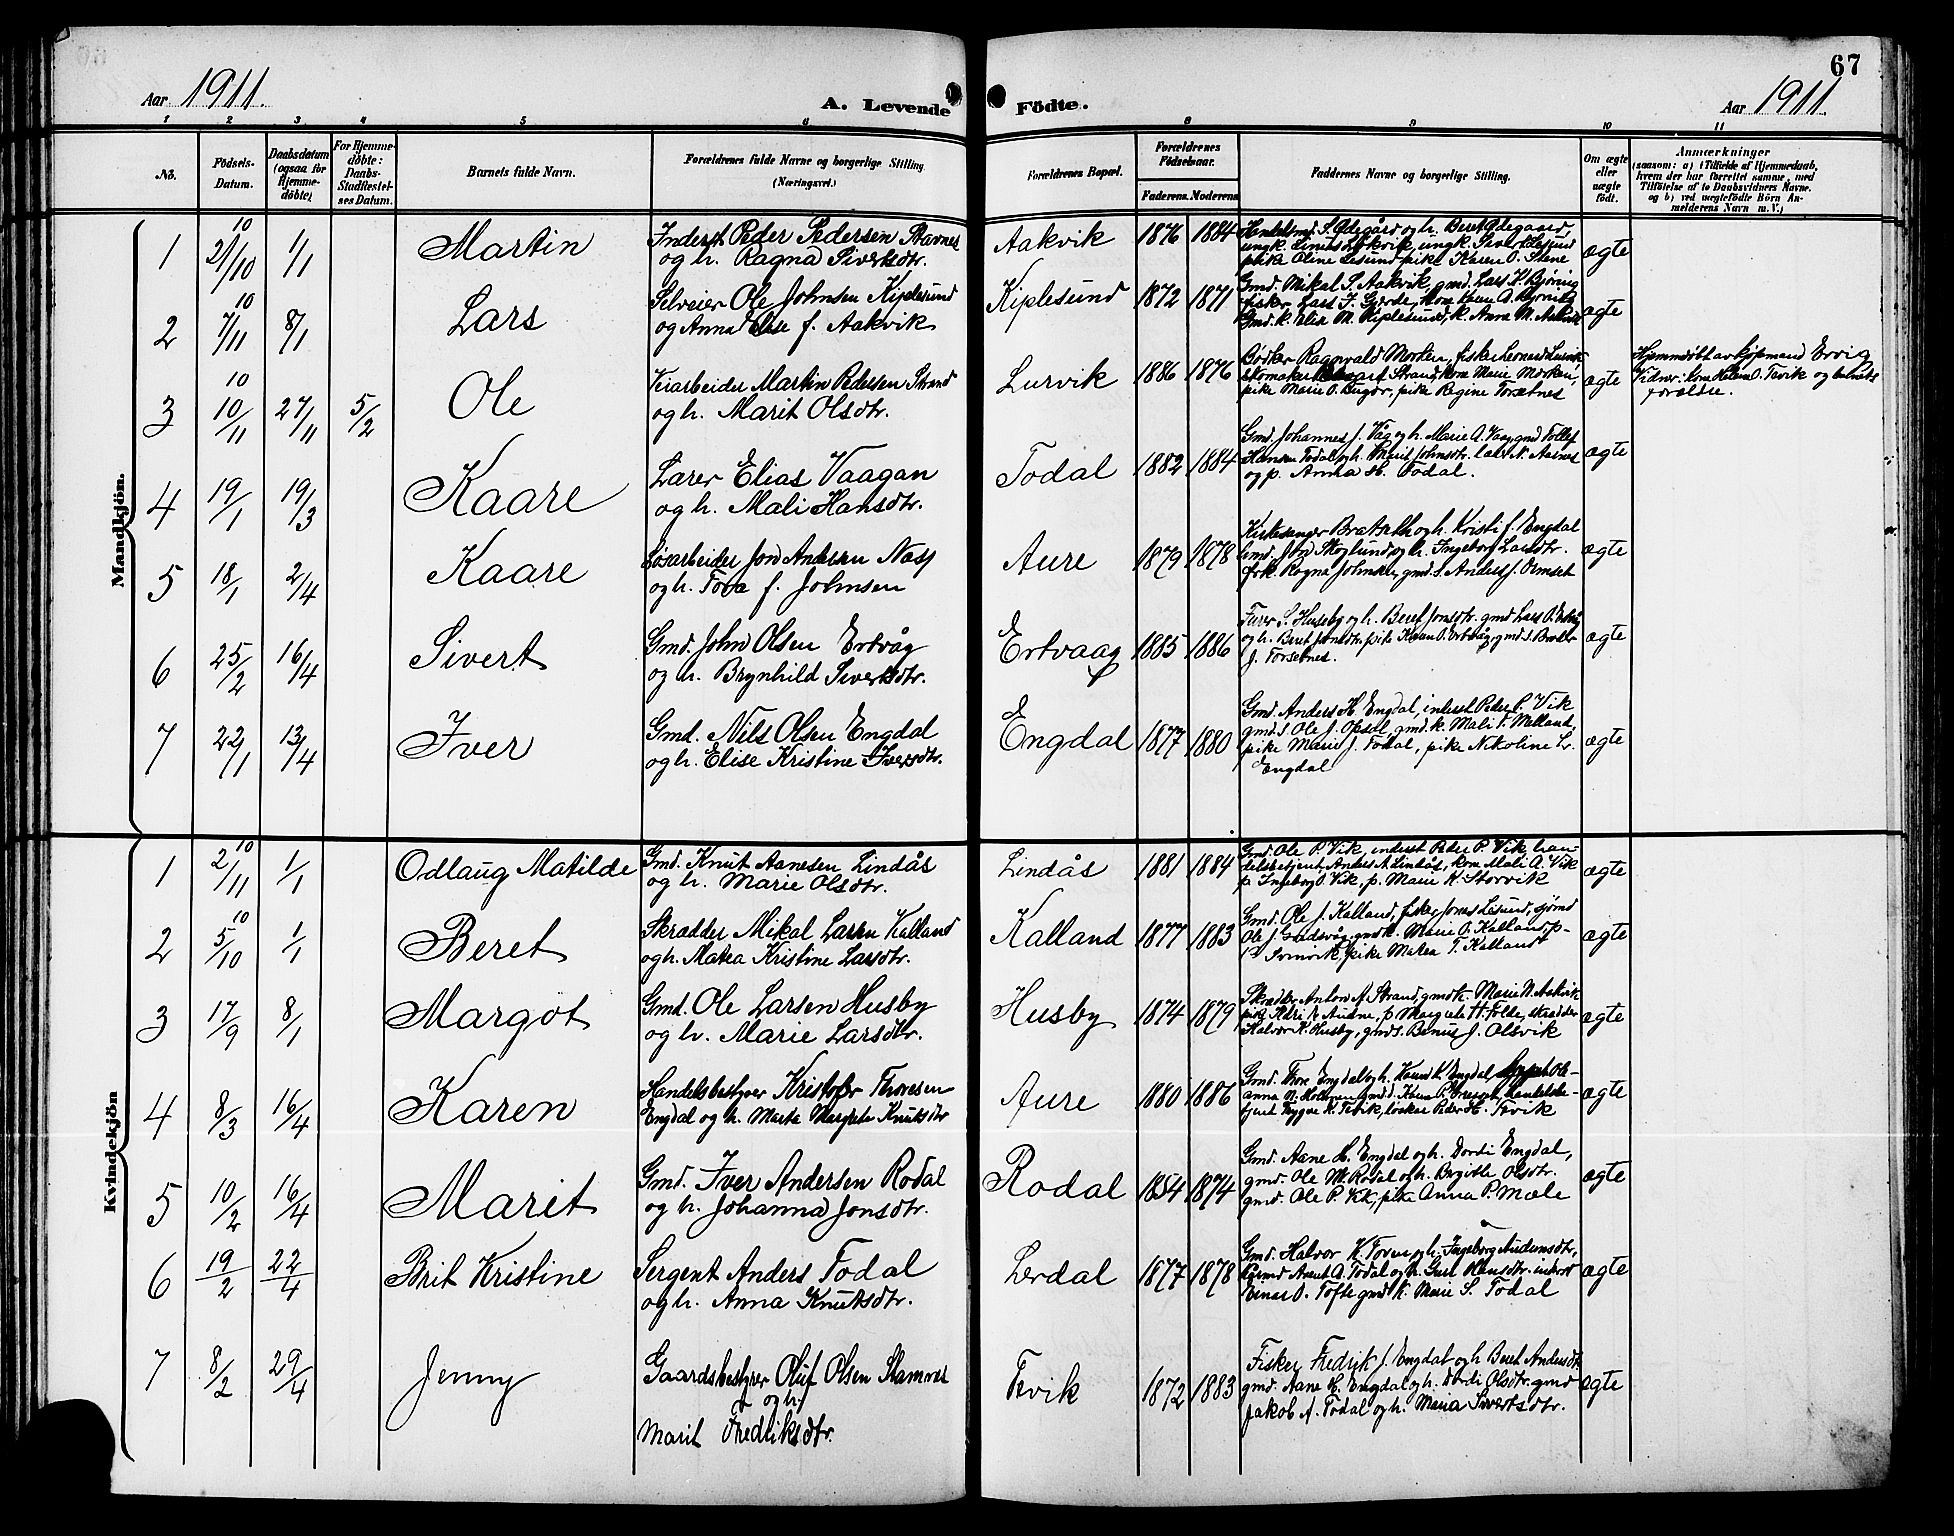 67
Aar 1911.
A. Levende Födte.
Aar 1911.
1 2 3 4 5 6 8 9 10 11
No.
Födsels-Datum.
Daabsdatum (ogsaa for Hjemmedöbte)
For Hjemmedöbte: Daabs-Stadfæstelses Datum.
Barnets fulde Navn.
Forældrenes fulde Navne og borgerlige Stilling. (Næringsvei.)
Forældrenes Bopæl.
Forældrenes Födselsaar.
Faderens. Moderens.
Faddernes Navne og borgerlige Stilling.
Om ægte eller uægte födt.
Anmærkninger
(saasom: a) i Tilfælde af Hjemmedaab,
hvem der har forrettet samme, med
Tilföielse af to Daabsvidners Navne.
og b) ved uægtefödte Börn An-
melderens Navn m. V.)
Mandkjön.
1 21/10 10 1/1 Martin
Inderst Peder Pedersen Stavnes
og h. Ragna Sivertsdtr.
Aakvik 1876 1884
S. Ødegård og h. Beret Ødegaard
pike Oline Lesund pike Karen O. Stene
ægte
2 7/11 10 8/1 Lars
Selveier Ole Johnsen Kiplesund
og Anna Else f. Aakvik
Kiplesund 1872 1871
Gmd. Mikal S. Aakvik, gmd. Lars K. Bjøring
fisker Lars J. Gjerde, kone
Gmd. k. M. Kiplesund, k. Anna M. Aakvik
ægte
3 10/11 10 27/11 5/2 Ole
Veiarbeider Martin Pedersen Strand
og h. Marit Olsdtr.
Lurvik 1886 1876
Bødker Ragnvald Morken, fisker Leonard Lurvik
skomaker Strand, kone Marie Morken,
pike Marie O. pike Regine Torsetnes
ægte
Hjemmedøbt av kjøpmand Ervig
Vidner: kone O. Tevik og barnets
forældre.
4 19/1 19/3 Kaare
Lærer Elias Vaagan
og h. Mali Hansdtr.
Todal 1882 1884
Gmd. Johannes J. Våg og h. Marie A. Vaag, gmd Tollef
Hansen Todal og h. Marit Johnsdtr. lærer N. Aasnes
og p. Anna H. Todal.
ægte
5 18/1 2/4 Kaare
Løsarbeider Jon Andersen Næss
og h. Tova f. Johnsen
Aure 1879 1878
Kirkesanger Bratseth og h. Kristi f. Engdal
Gmd. Jon Skoglund og h. Ingeborg Larsdtr.
frk. Ragna Johnsen, gmd. s. Anders J. Ormset
ægte
6 25/2 16/4 Sivert
Gmd. John Olsen Ertvåg
og h. Brynhild Sivertsdtr.
Ertvaag 1885 1886
S. Huseby og h. Beret Jonsdtr. gmd Lars O.
og h. Beret Jonsdtr. pike Karen O. Ertvåg, gmd. s.
J. Torsetnes.
ægte
7 22/1 13/4 Iver
Gmd. Nils Olsen Engdal
og h. Elise Kristine Iversdtr.
Engdal 1877 1880
Gmd. Anders H. Engdal, inderst Peder P. Vik
gmd. s. Ole J. Opsal, gmd. k. Mali T. Melland,
pike Marie J. Todal, pike Nikoline Lr.
Engdal
ægte
Kvindekjön
1 2/11 10 1/1 Odlaug Matilde
Gmd. Knut Aanesen Lindås
og h. Marie Olsdtr.
Lindås 1881 1884
Gmd. Ole P. Vik, inderst Peder P. Vik han-
delsbetjent Anders A. Lindås, kone Mali A. Vik
p. Ingeborg O. Vik, p. Marie K. Storvik
ægte
2 5/10 10 1/1 Beret
Skrædder Mikal Larsen Kalland
og h. Matea Kristine Larsdtr.
Kalland 1877 1883
Gmd. Ole J. Kalland, fisker Jonas Lesund, sjømd
Ole J. gmdk. Marie O. Kalland p-
Svinvik, pike Matea T. Kalland
ægte
3 17/9 8/1 Margot
Gmd. Ole Larsen Husby
og h. Marie Larsdtr.
Husby 1874 1879
Skrædder Anton A. Strand, gmdk. Marie N. Aakvik
p. Margrete H. Folde, skrædder
Halvor K. Husby, gmds. J. Olsvik
ægte
4 8/3 16/4 Karen
Handelsbestyrer Kristofer Thoresen
Engdal og h. Marta Margrete Knutsdtr
Aure 1880 1886
Gmd. Thore Engdal og h. Karen K. Engdal,
anna N. gmd d. Karen P. handelsbe-
tjent Trygve K. Tevik, Peder H. Tevik
ægte
5 10/2 16/4 Marit
Gmd. Iver Andersen Rodal
og h. Johanna Jonsdtr.
Rodal 1854 1874
Gmd. Aane H. Engdal og h. Dordi Engdal,
gmd. Ole M. Rodal og h. Brgitte Olsdtr.
gmd. Ole P. Vik, pike Anna P. Mæle
ægte
6 19/2 22/4 Brit Kristine
Sergent Anders Todal
og h. Anna Knutsdtr.
Lerdal 1877 1878
Gmd. Halvor K. og h. Ingeborg Audunsdtr,
Arnt A. Todal og h. Guri Hansdtr. inderst
Einar O. Tofte gmd k. Marie S. Todal
ægte
7 8/2 29/4 Jenny
Gaardsbestyrer Oluf Olsen Stamnes
og h.
Marit Fredriksdtr.
Tevik 1872 1883
Fisker Fredrik J. Engdal og h Beret Andersdtr
gmd. Aane H. Engdal og h. Dordi Olsdtr. gmd
Jakob A. Todal og h. Maria Sivertsdtr.
ægte